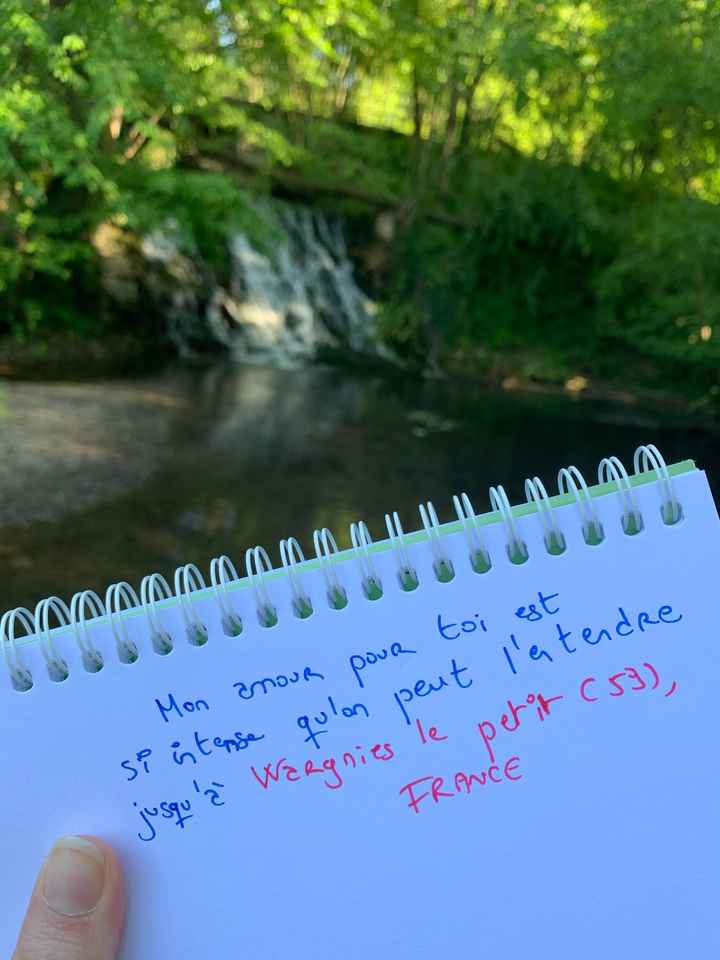 Mon amour pour toi est
si intense qu'on peut l'entendre
jusqu'à Wargnies le petit (59),
FRANCE